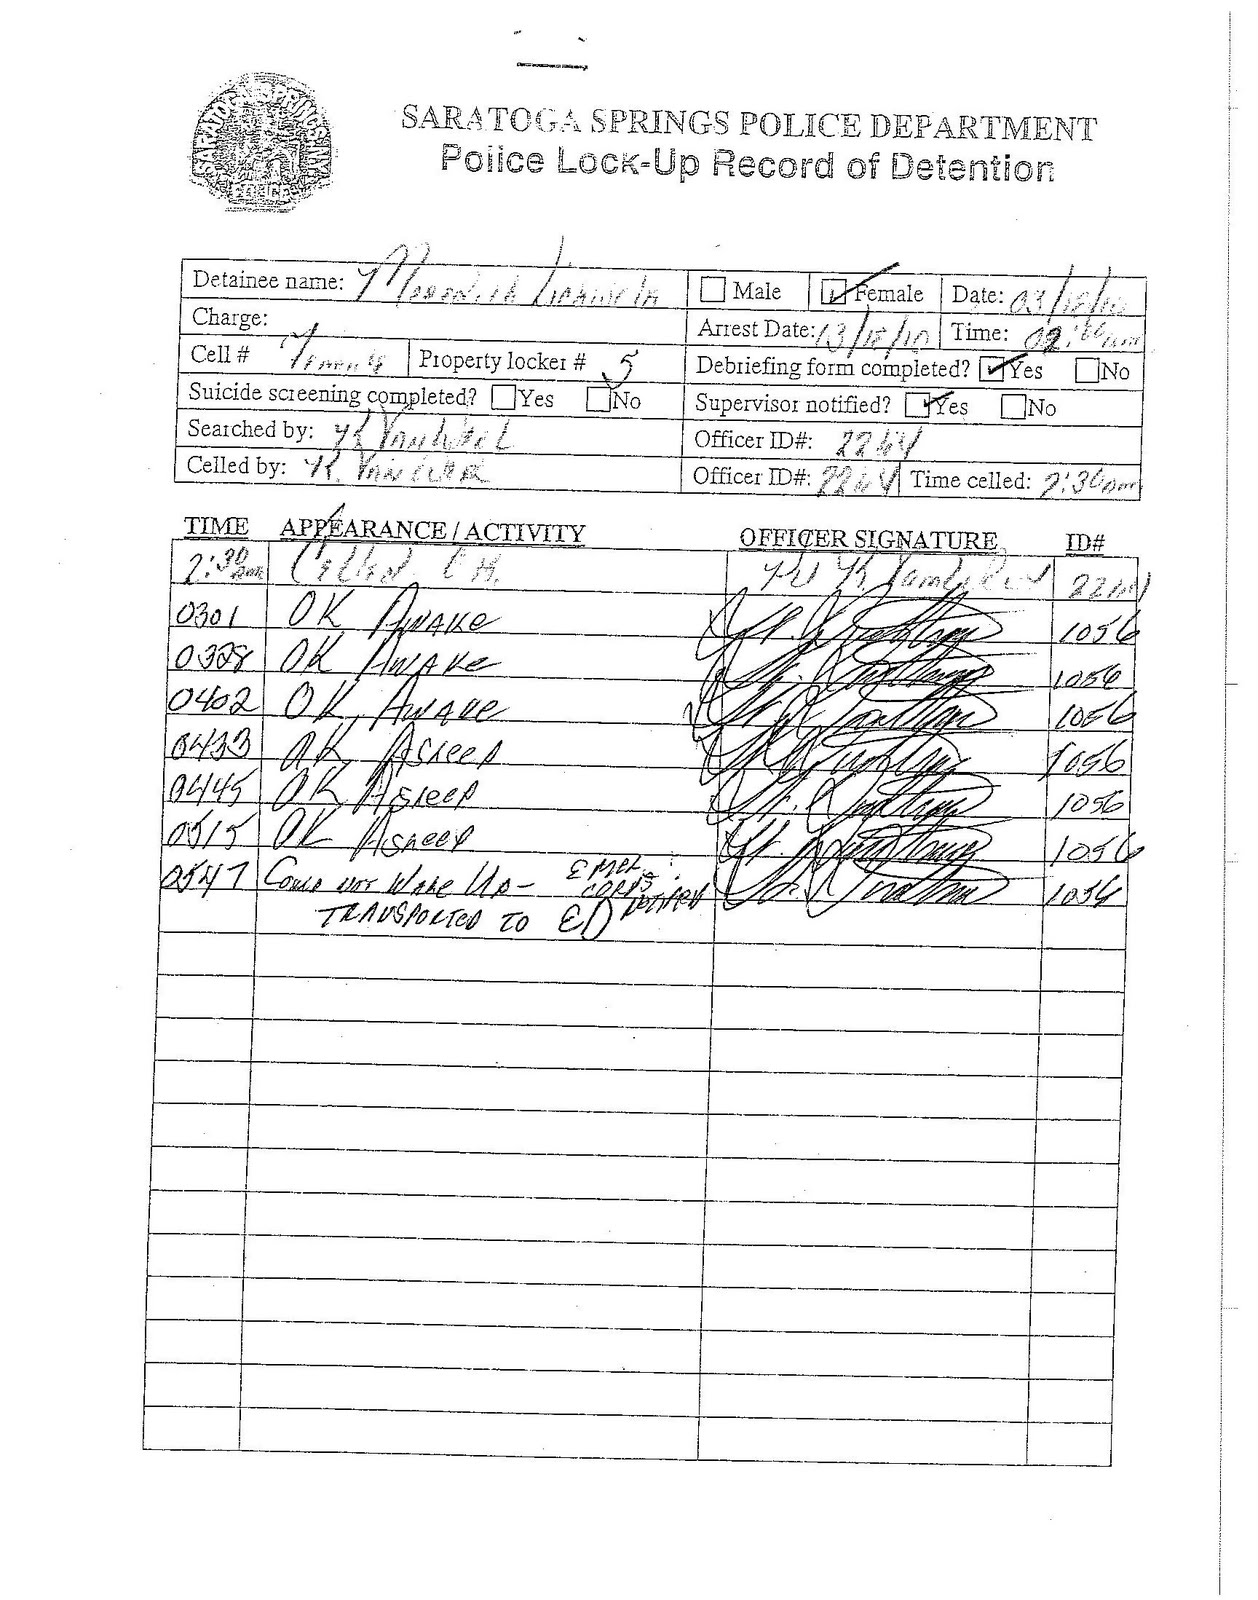 SARATOGA SPRINGS POLICE DEPARTMENT
Police Lock-Up Record of Detention
SARATOGA SPRINGS N.Y.
POLICE
Detainee name: Male Female Date: 03/18/10
Charge: Arrest Date: 03/18/10 Time:
Cell # Female Property locker # 5 Debriefing form completed? Yes No
Suicide screening completed? Yes No Supervisor notified? Yes No
Searched by: Officer ID#: 2264
Celled by: Officer ID#: 2264 Time celled: 2:30am
TIME APPEARANCE / ACTIVITY OFFICER SIGNATURE ID#
2:30 am Celled OK.
0301 OK AWAKE 1056
0328 OK AWAKE 1056
0402 OK, AWAKE 1056
0433 OK, ASLEEP 1056
0445 OK ASLEEP 1056
0515 OK ASLEEP 1056
0547 COULD NOT WAKE UP- EMER. CORPS NOTIFIED 1056
TRANSPORTED TO ED